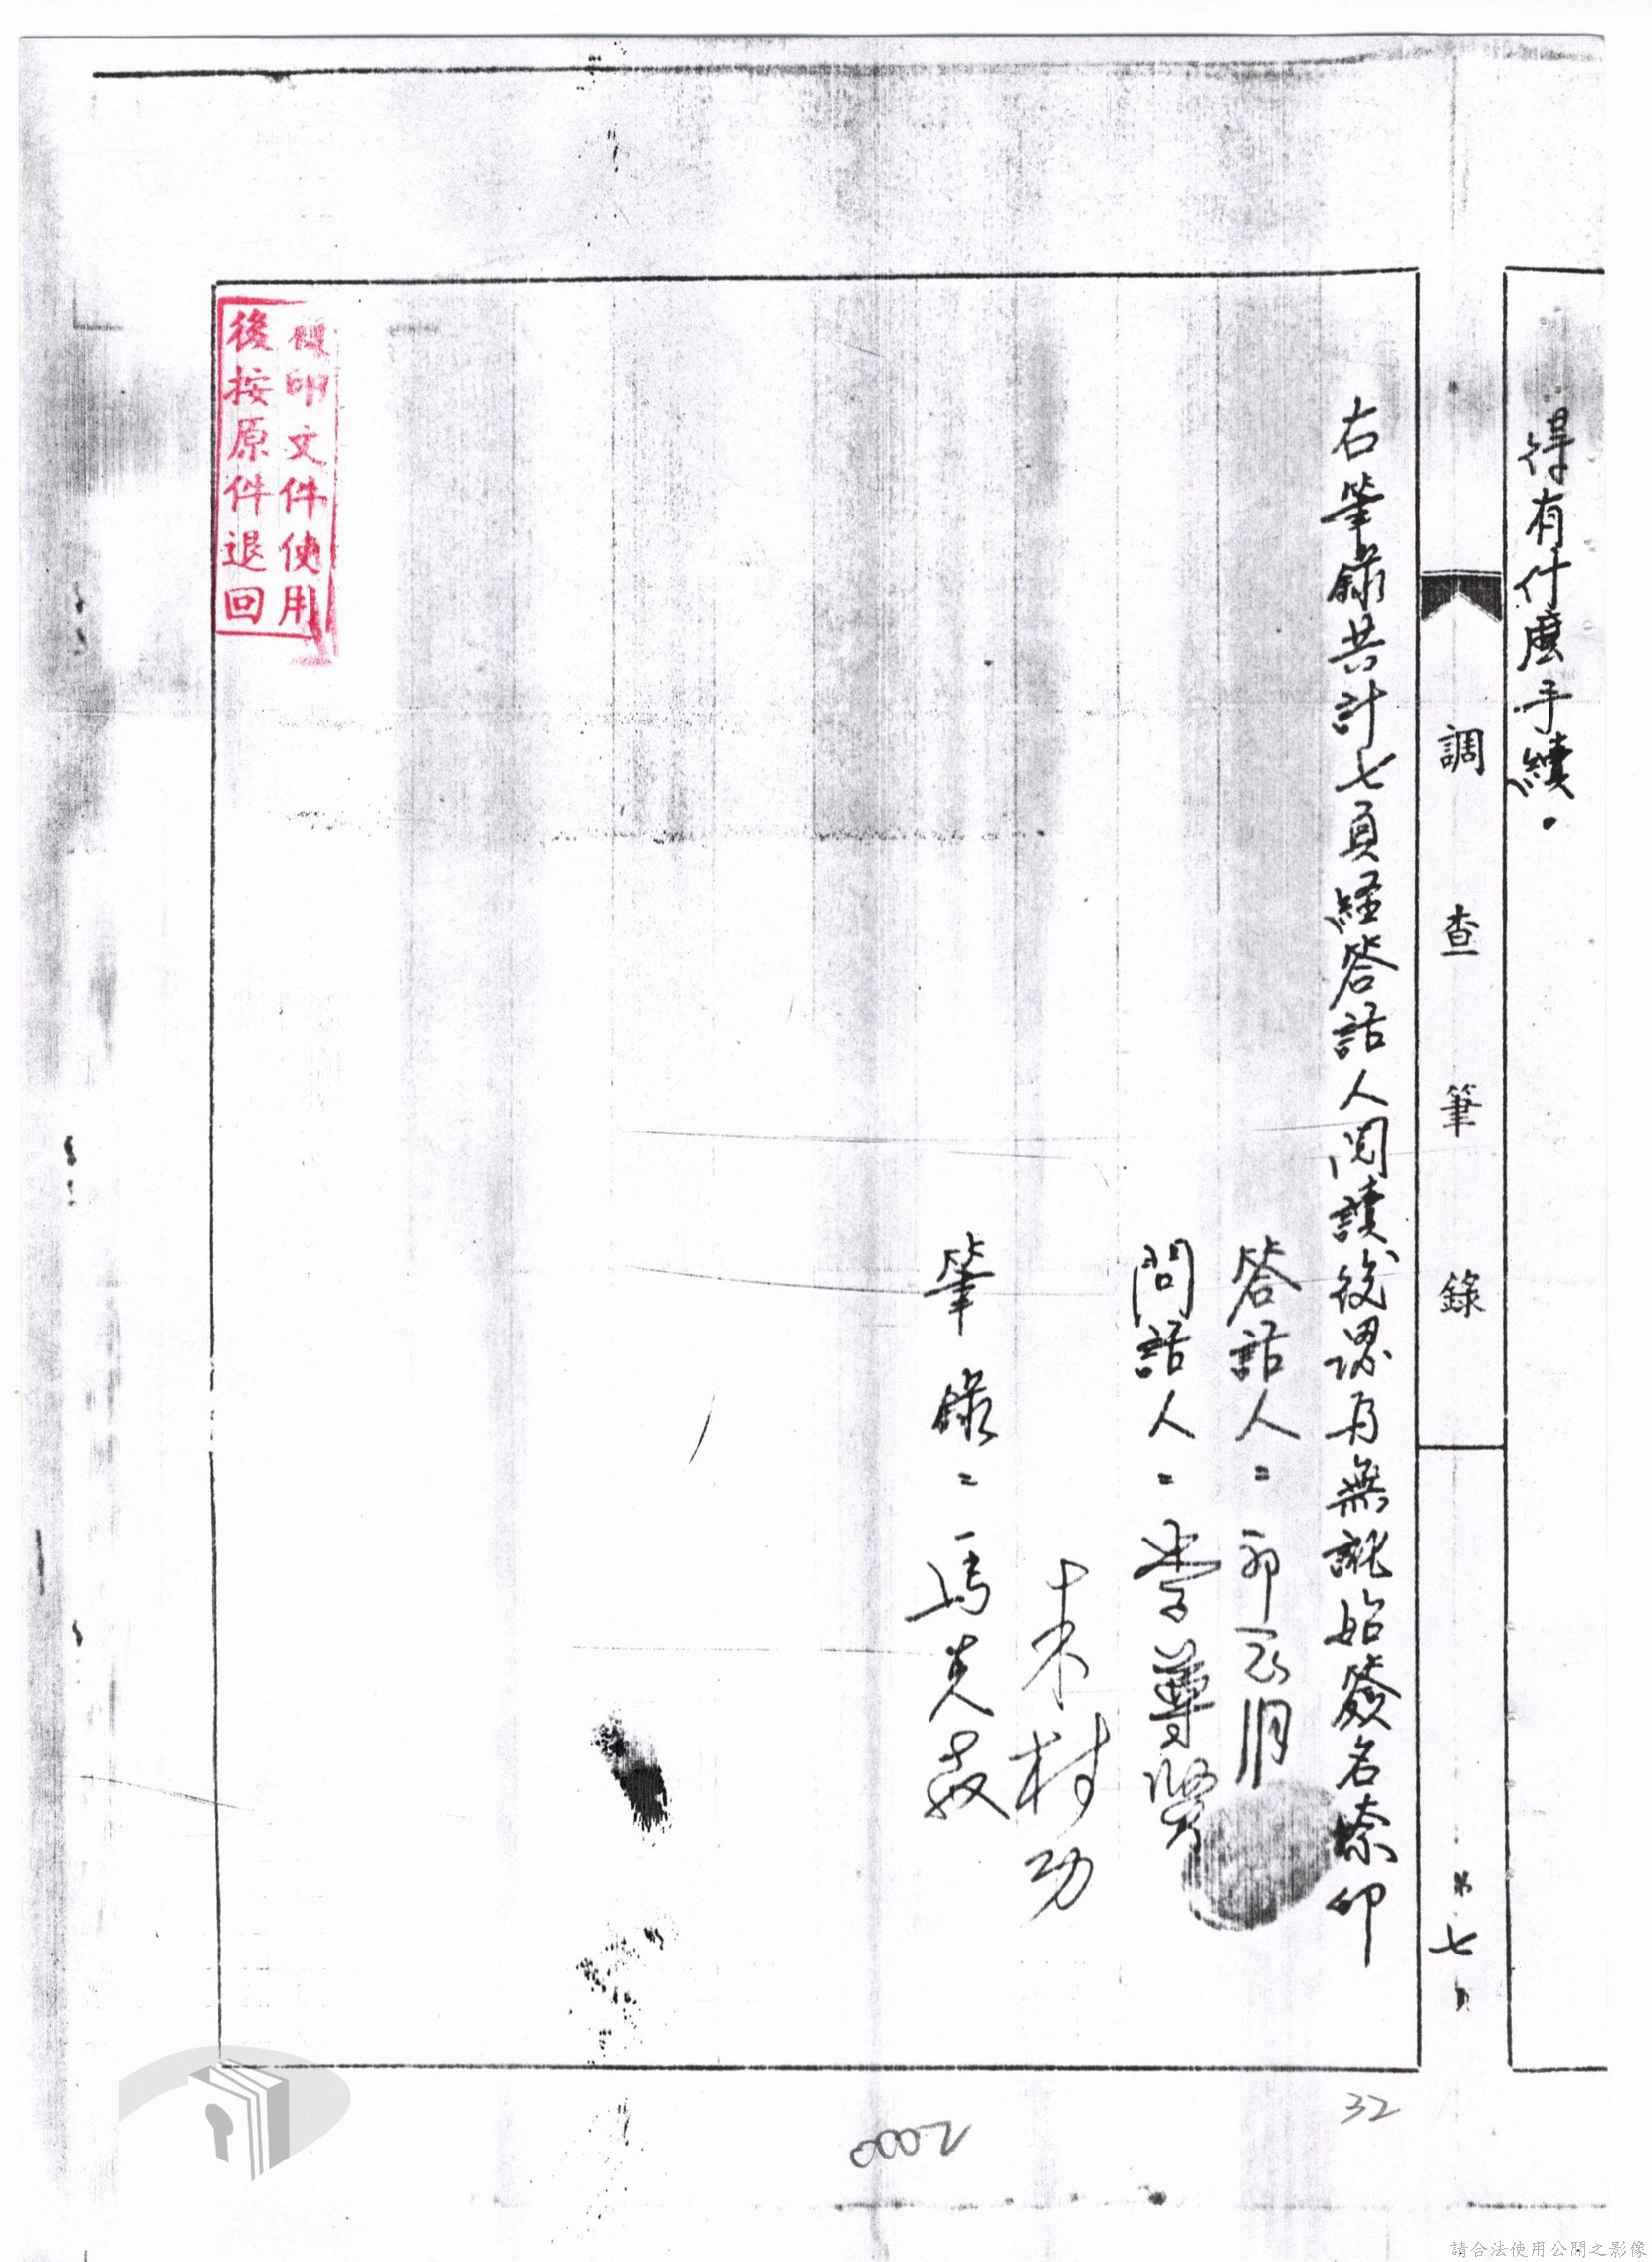 得有什麼手續。
調查筆錄
第七頁
右筆錄共計七頁經答話人閱讀後認為無訛始簽名捺印
答話人：
問話人：李尊賢
村功
筆錄：馬
複印文件使用
後按原件退回
32
0002
請合法使用公開之影像